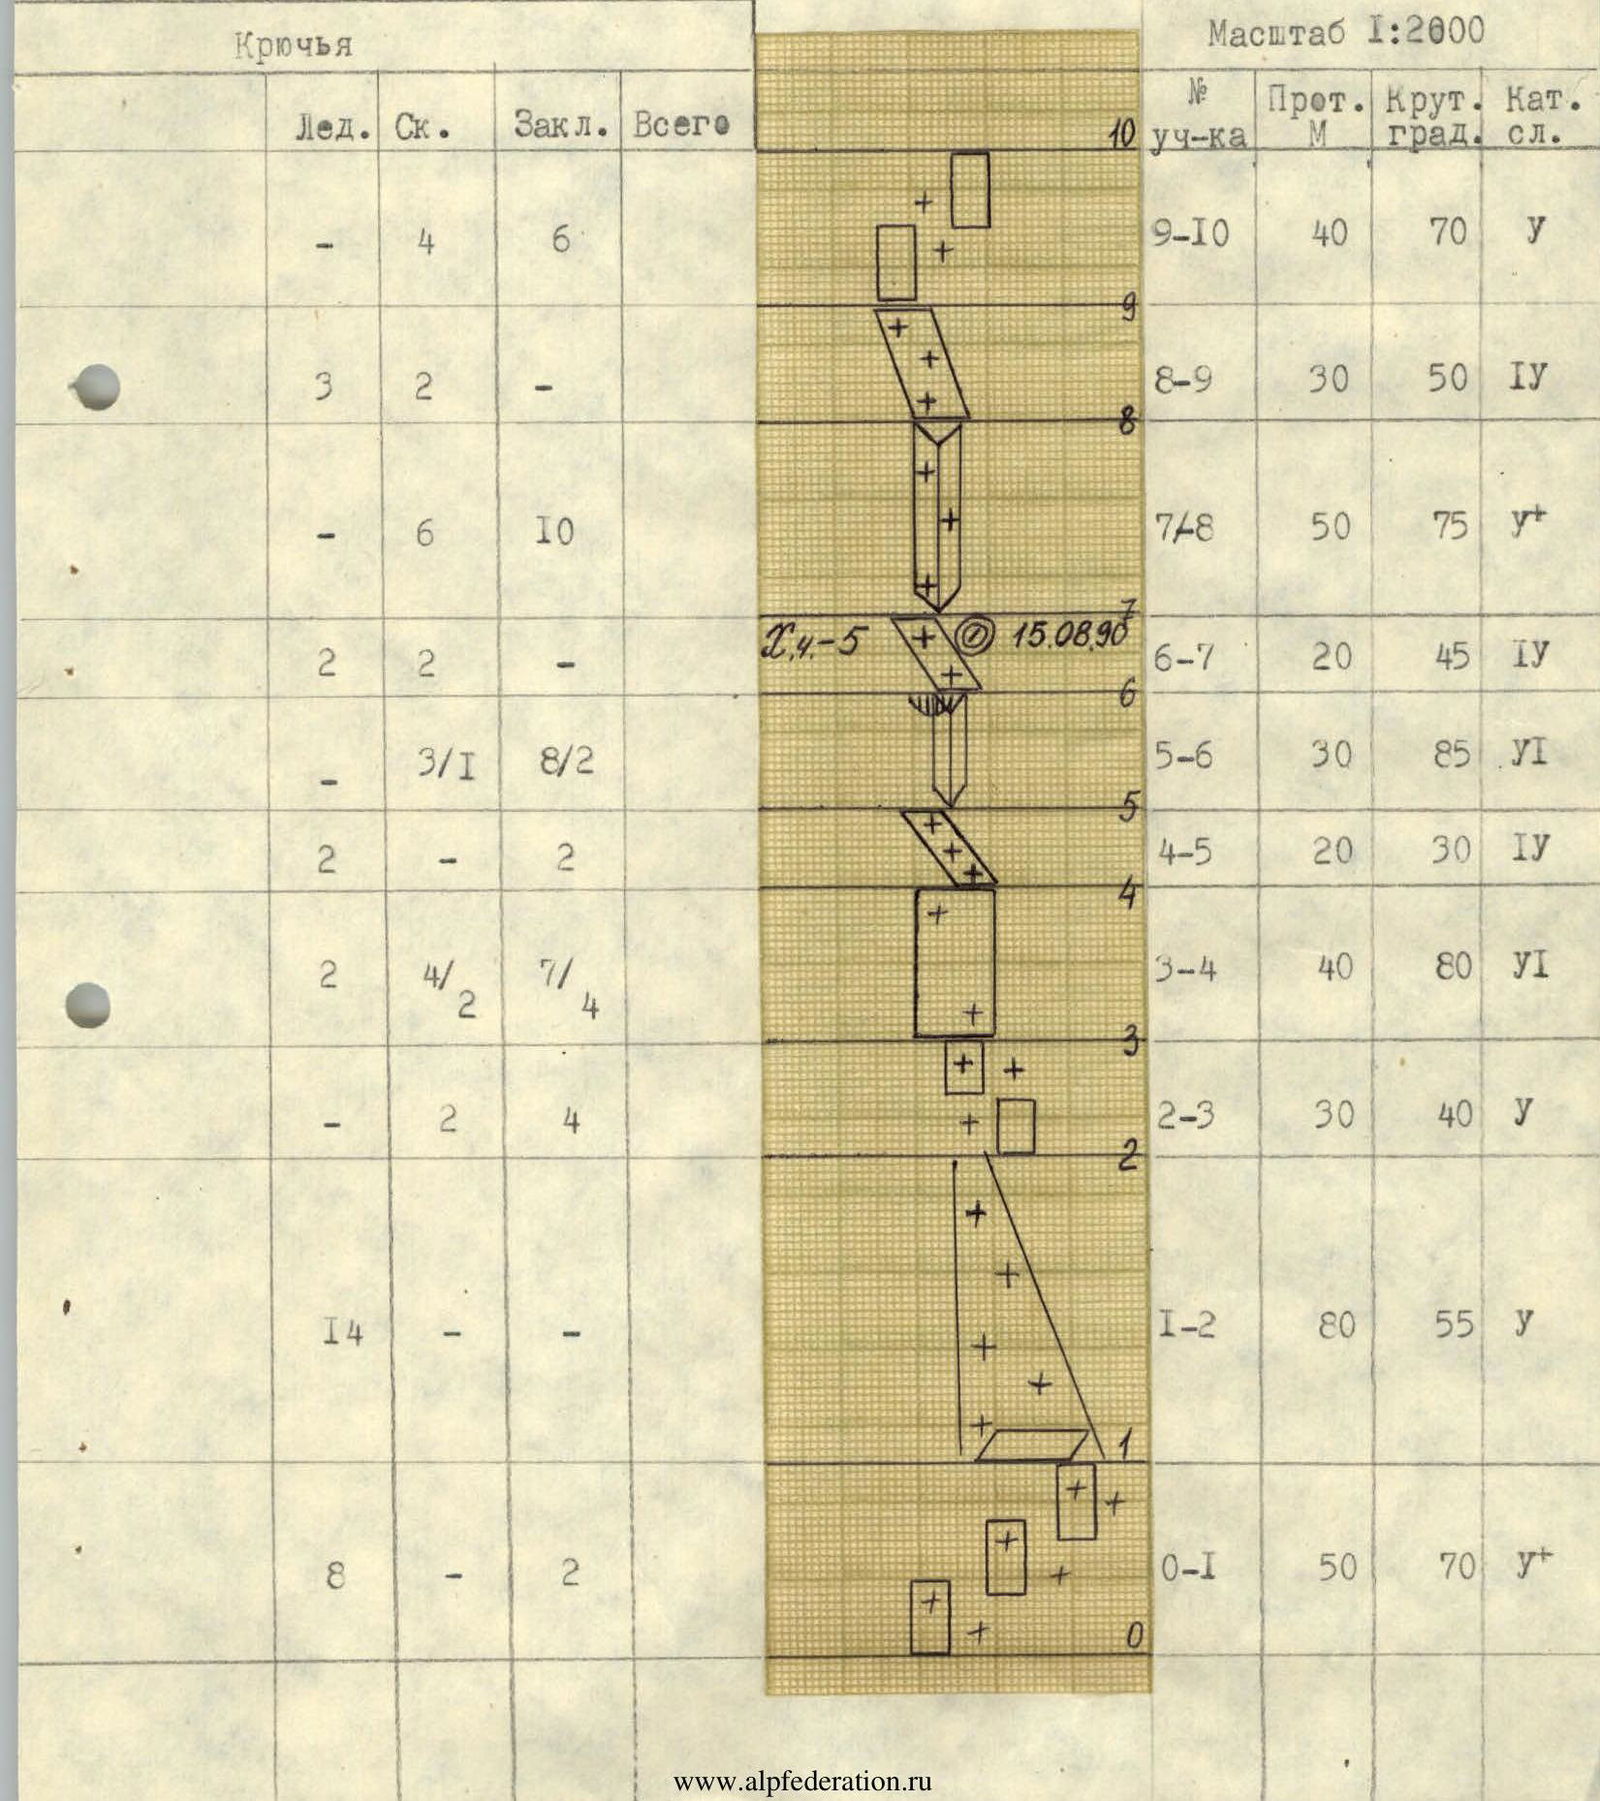 Крючья Масштаб I:2000
Лед. Ск. Закл. Всего № уч-ка Прот. М Крут. град. Кат. сл.
10
- 4 6 9-I0 40 70 У
9
3 2 - 8-9 30 50 IУ
8
- 6 I0 7-8 50 75 У+
7
Х.ч.-5 15.08.90
2 2 - 6-7 20 45 IУ
6
- 3/I 8/2 5-6 30 85 УI
5
2 - 2 4-5 20 30 IУ
4
2 4/2 7/4 3-4 40 80 УI
3
- 2 4 2-3 30 40 У
2
I4 - - I-2 80 55 У
1
8 - 2 0-I 50 70 У+
0
www.alpfederation.ru